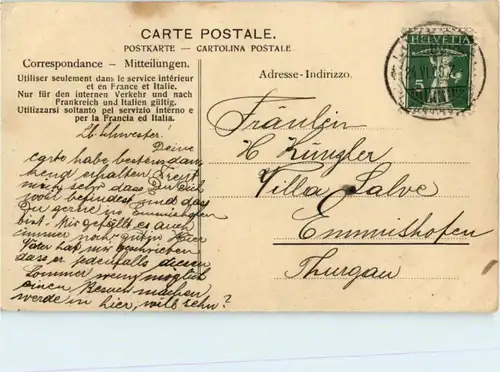 CARTE POSTALE.
POSTKARTE — CARTOLINA POSTALE
Correspondance — Mitteilungen.
Utiliser seulement dans le service intérieur
et en France et Italie.
Nur für den internen Verkehr und nach
Frankreich und Italien gültig.
Utilizzarsi soltanto pel servizio interno e
per la Francia ed Italia.
Lb. Schwester! Deine
carte habe bestens dan-
kend erhalten. Freut
mich sehr dass Du Dich
wohl befindest und dass
Du gerne in Emmishofen
bist. Mir gefällt es auch
immer noch gut hier
Vater hat mir geschrieben
dass er jedenfalls diesen
Sommer wenn möglich
einen Besuch machen
werde in hier, will sehn?
Adresse-Indirizzo.
Fräulein
Villa Salve
Emmishofen
Thurgau
HELVETIA